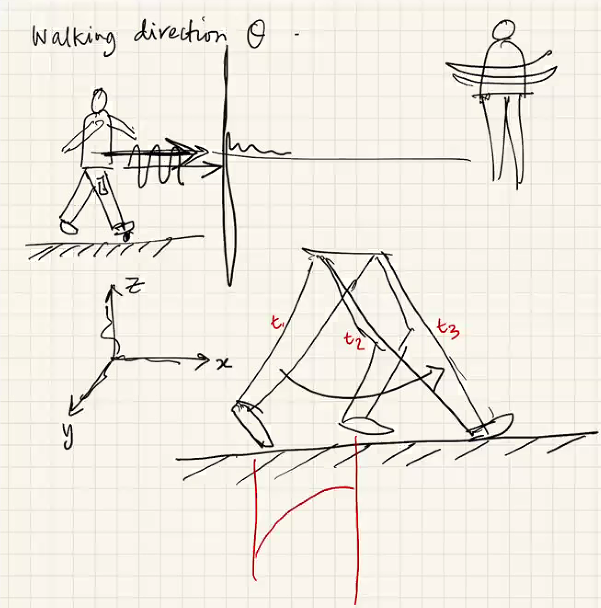 Walking direction θ
z
x
y
t₁
t₂
t₃